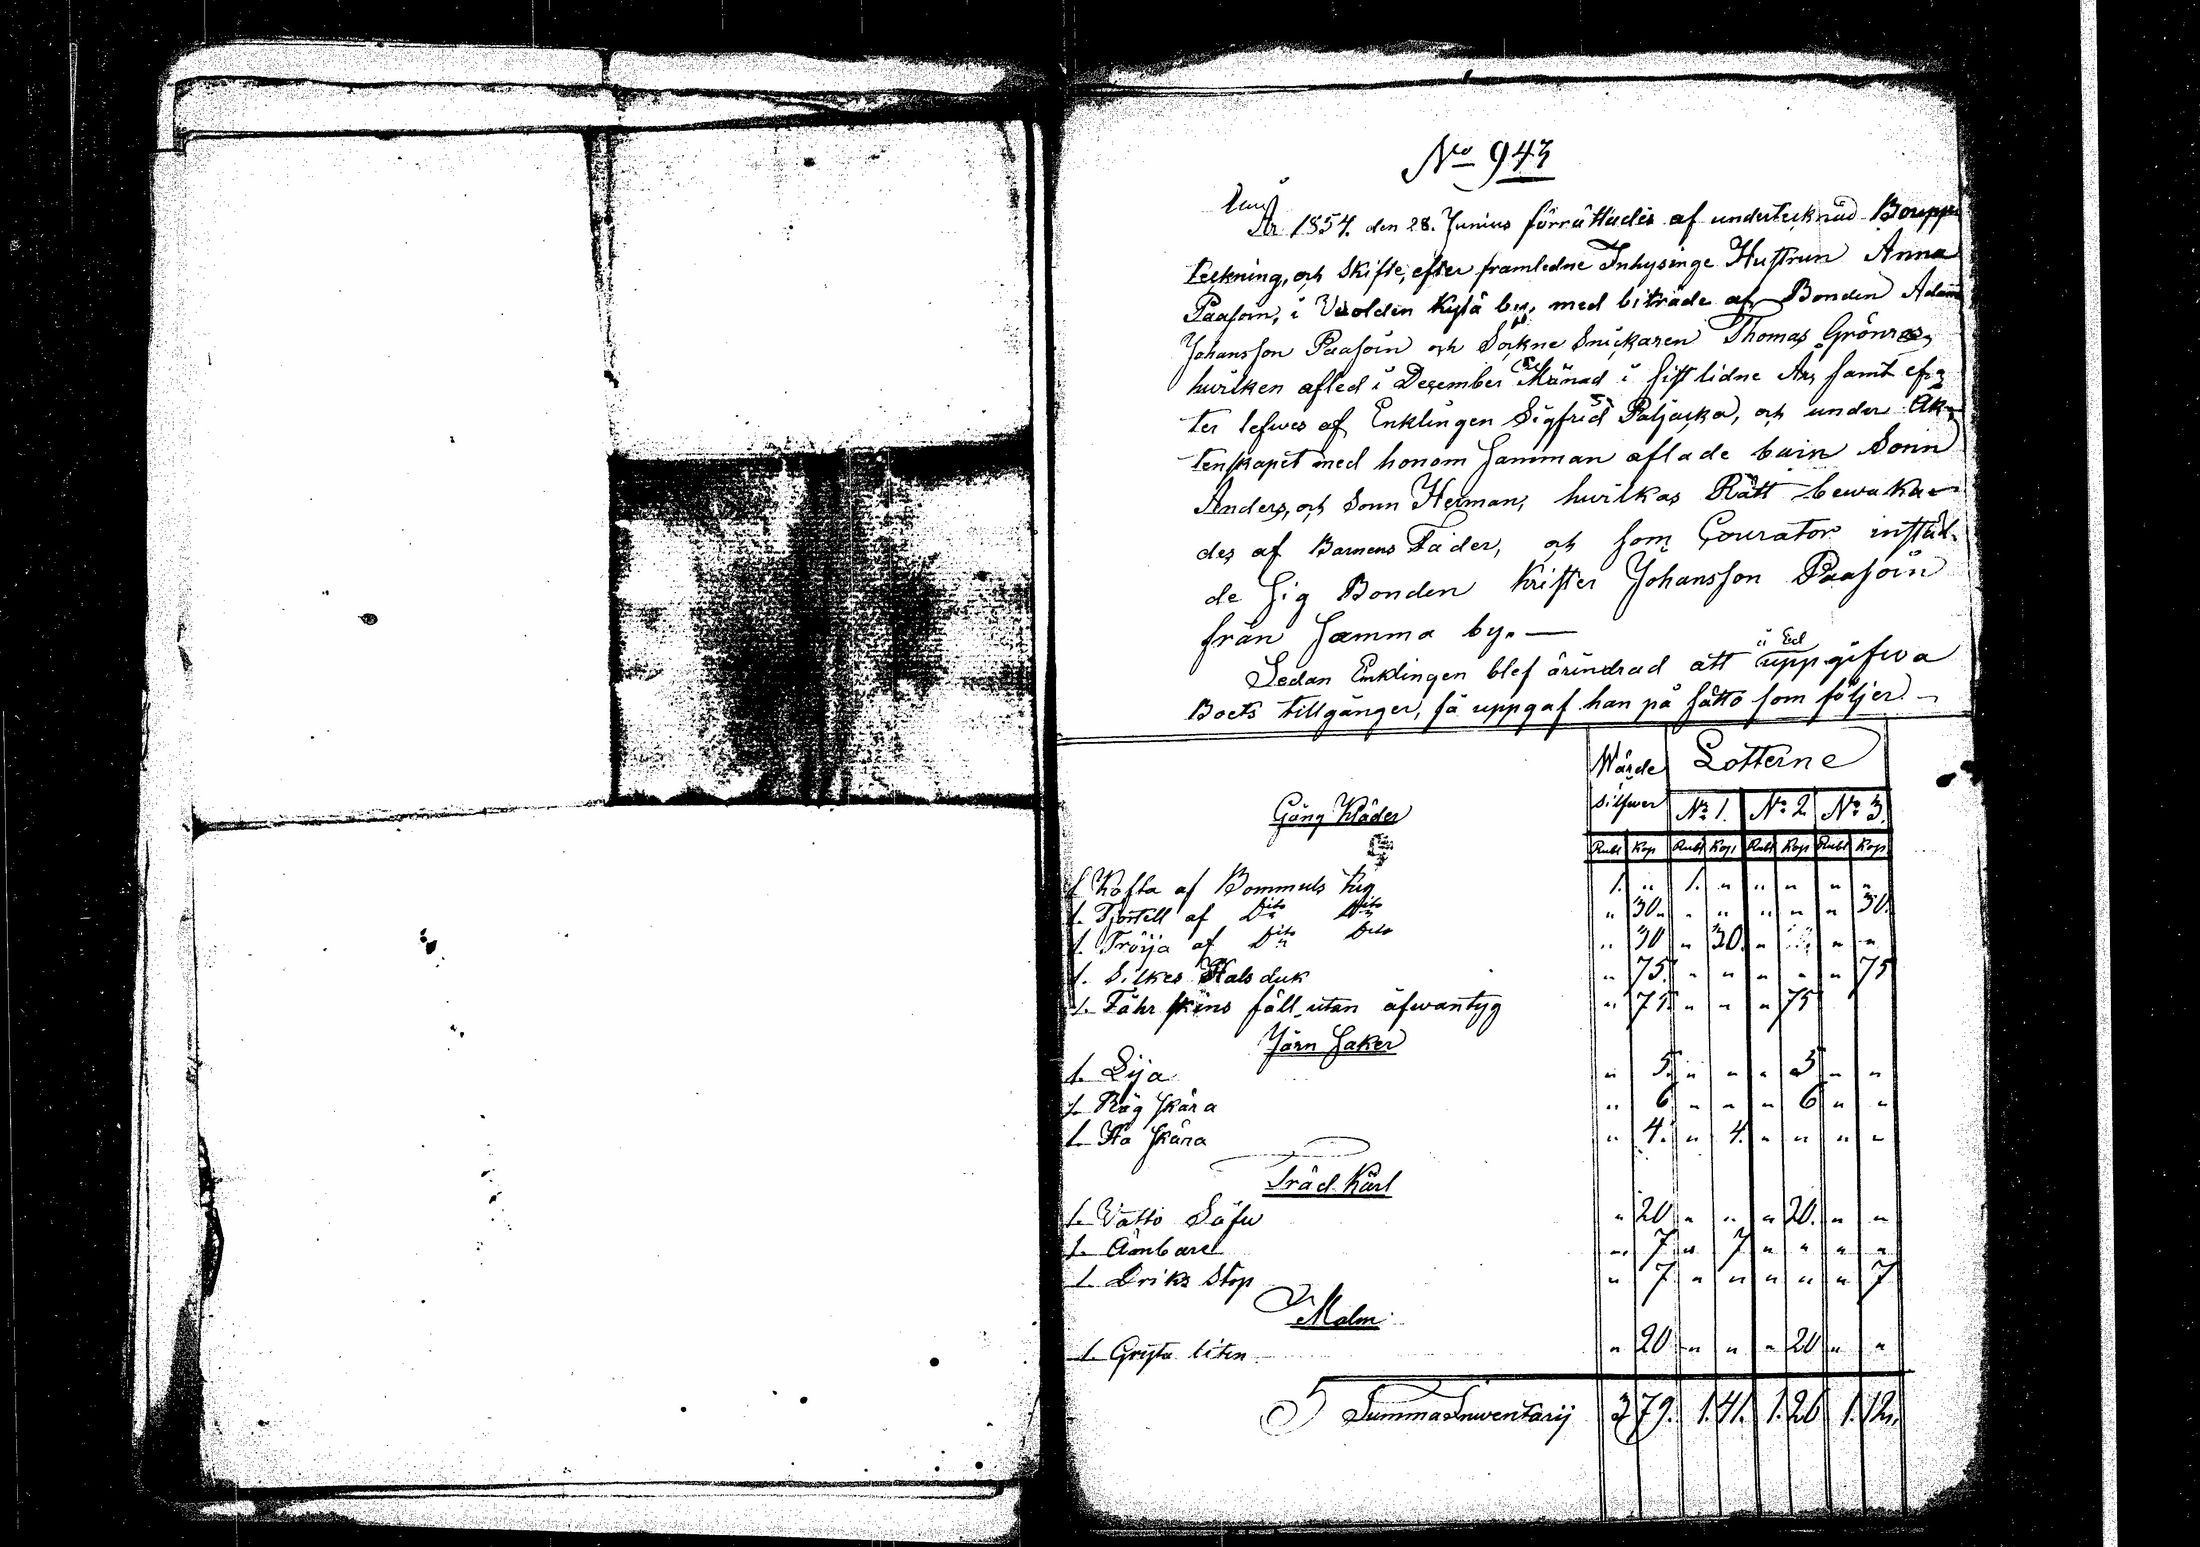 No 943
År 1854. den 28. Junius förrättades af undertecknad Boupp
teckning, och Skifte, efter framledne Inhysinge Hustrun Anna
Paasoin, i Kylä by, med biträde af Bonden Adam
Johansson Paasoin och Sockne Snickaren Thomas Grönroos,
hvilken afled i December Månad i sistlidne År, samt ef-
ter lefwes af Enklingen Sigfrid Paljacka, och under Äk-
tenskapet med honom samman aflade barn Sonn
Anders, och Sonn Herman, hwilkas Rätt bewaka-
des af Barnens Fader, och som Courator instäl-
de sig Bonden Krister Johansson Paasoin
från samma by. —
Sedan Enklingen blef ärindrad att å Ed uppgifwa
Boets tillgånger, så uppgaf han på sätto som följer —
Wärde Silfwer Lotterne
Gång Kläder No 1. No 2 No 3.
Rubl Kop Rubl Kop Rubl Kop Rubl Kop
1 Kofta af Bommuls tyg 1. " 1. " " " " "
1. Tjortell af Dito Dito " 30 " " " " " 30.
1. Tröija af Dito Dito " 30 " 30. " " " "
1. Silkes Halsduk " 75. " " " " " 75
1. Fåhr skins fäll utan åfwantyg " 75. " " " 75
Järn Saker
1. Lija " 5. " " " 5 " "
1. Råg skära " 6 " " " 6 " "
1. Hö skära " 4. " 4. " " " "
Träd Kärl
1. Vatto Såfw " 20 " " " 20. " "
1. Ämbare " 7 " 7 " " " "
1. Driks Stop " 7 " " " " " 7
Malm
1. Gryta liten " 20 " " " 20 " "
Summa Inwentarij 3 79. 1. 41. 1. 26 1. 12.